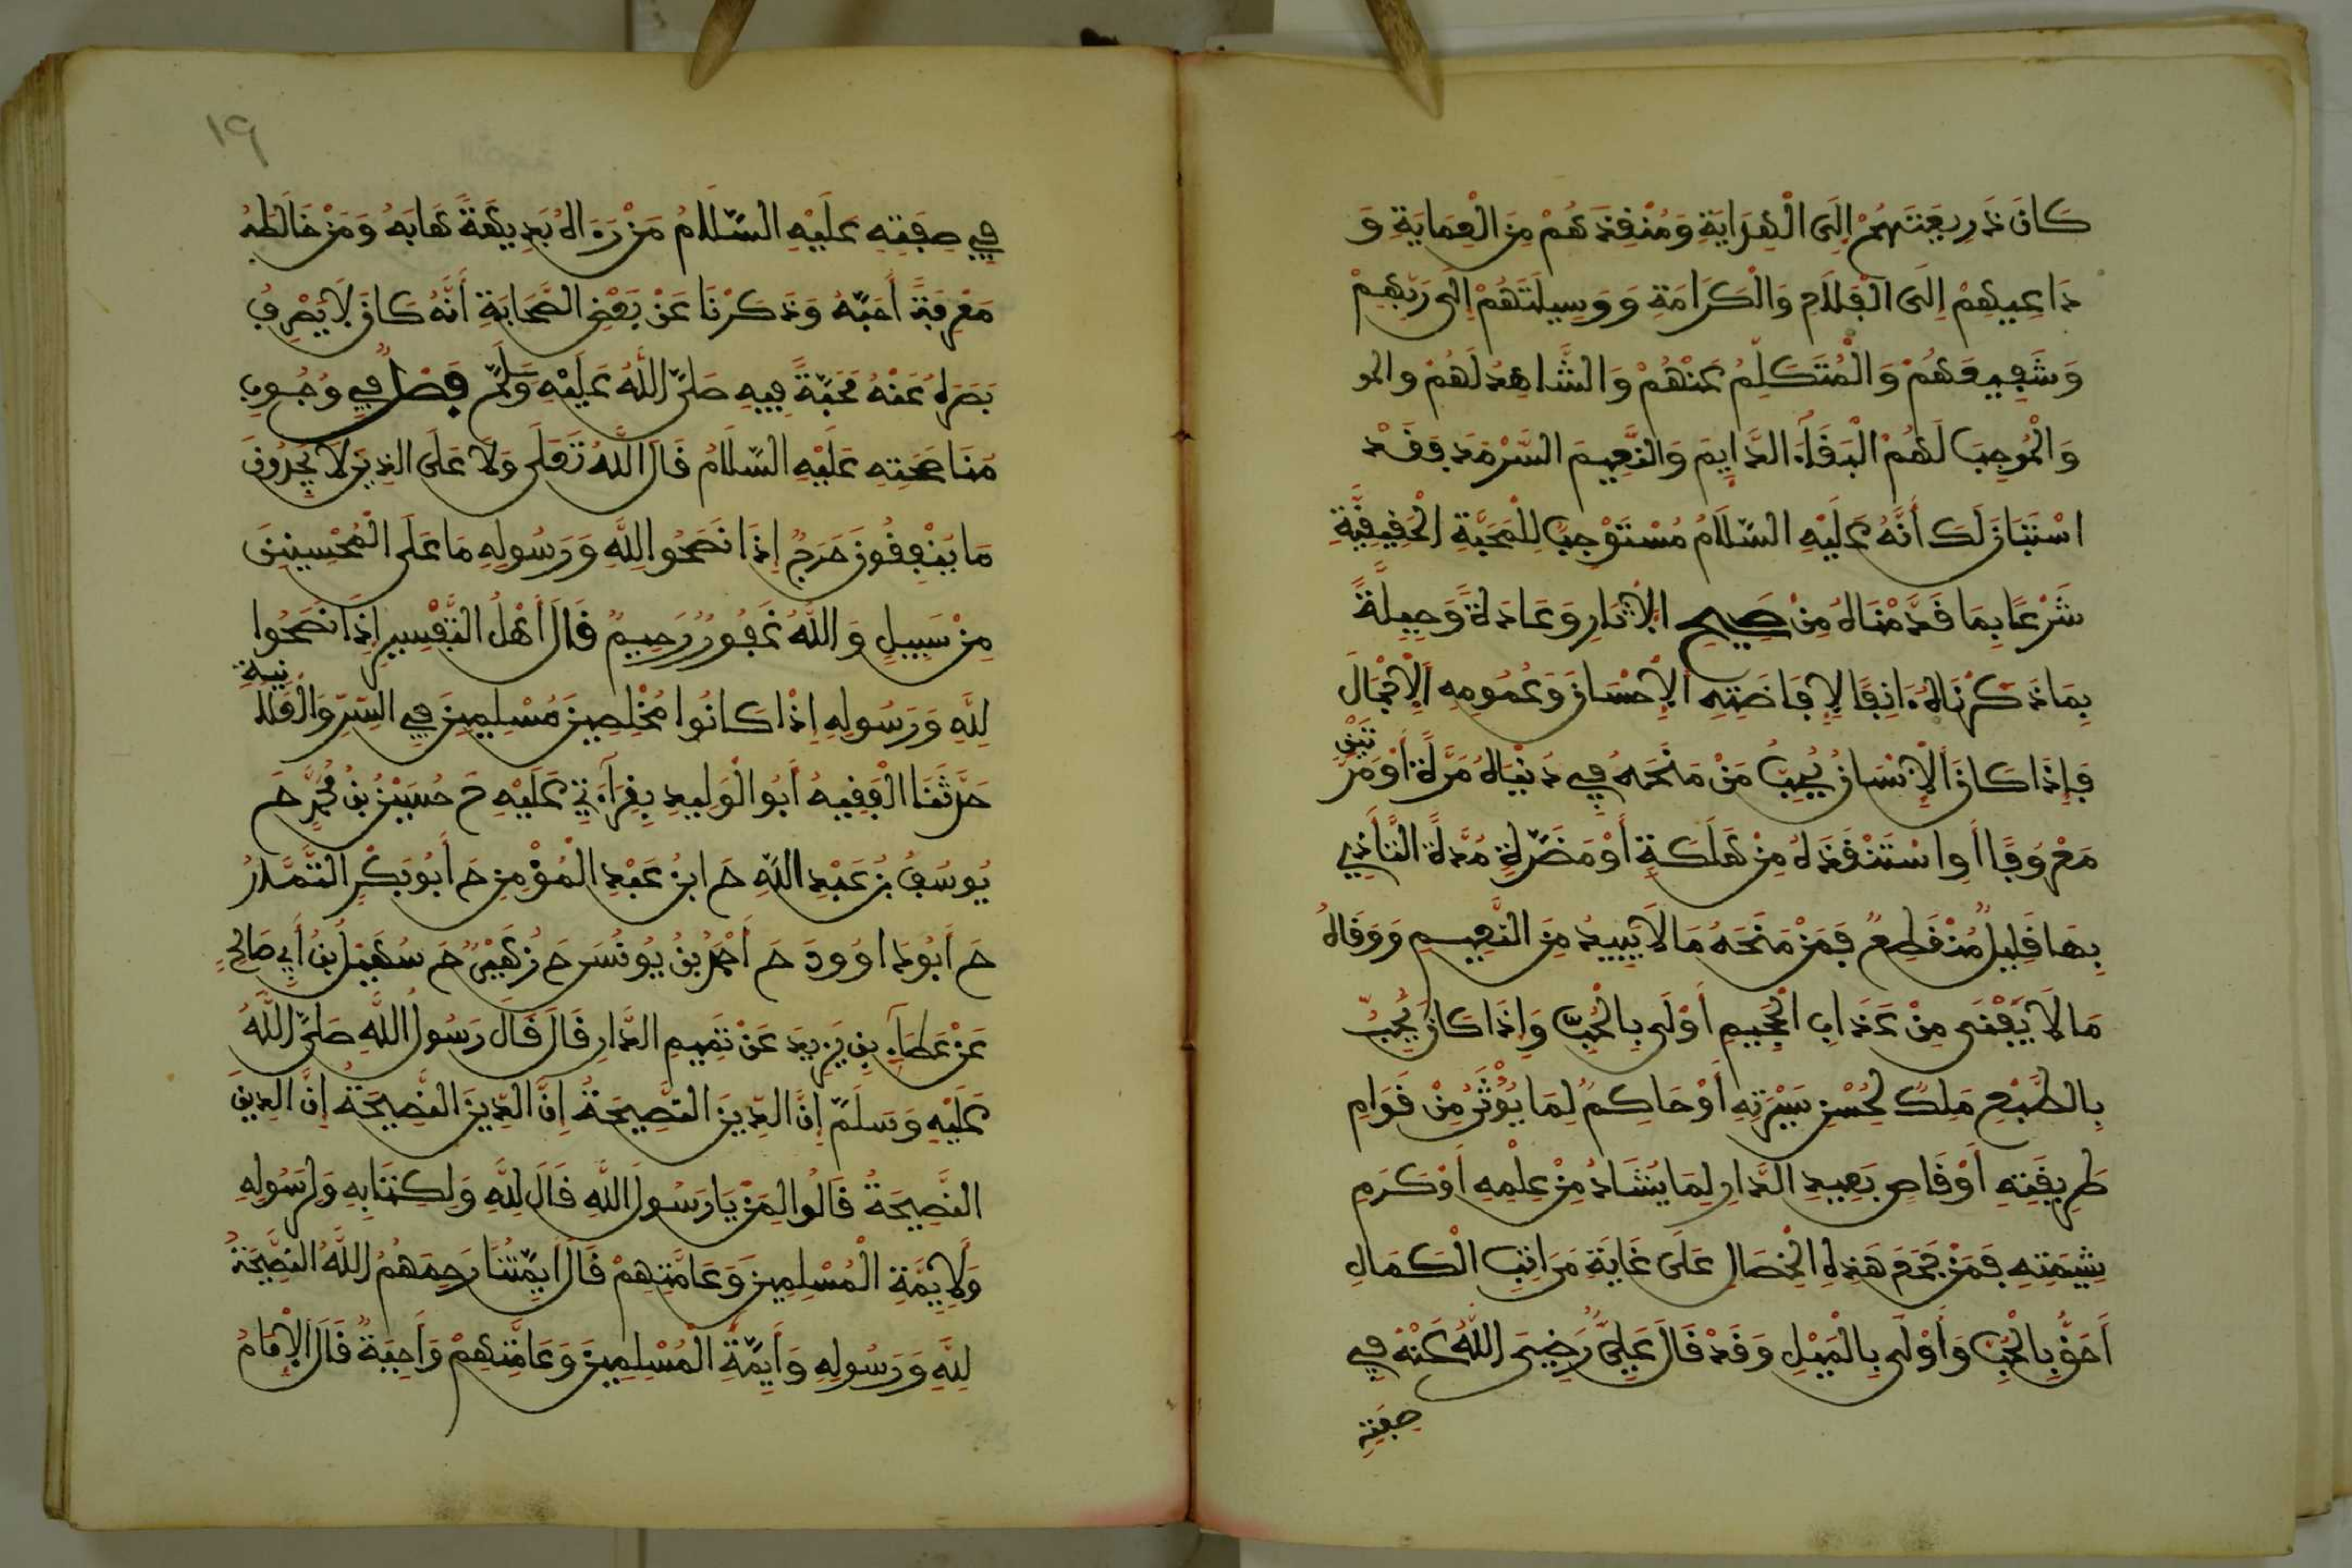 كَانَ ذَرِيعَتَهُمْ إِلَى الْهِدَايَةِ وَمُنْقِذَهُمْ مِنَ الْعِمَايَةِ وَ
دَاعِيهِمْ إِلَى الْفَلَاحِ وَالْكَرَامَةِ وَوَسِيلَتَهُمْ إِلَى رَبِّهِمْ
وَشَفِيعَهُمْ وَالْمُتَكَلِّمُ عَنْهُمْ وَالشَّاهِدُ لَهُمْ والمو
وَالْمُوجِبَ لَهُمْ الْبَقَاءَ الدَّايِمَ وَالنَّعِيمَ السَّرْمَدَ فَقَدْ
اسْتَبَانَ لَكَ أَنَّهُ عَلَيْهِ السَّلَامُ مُسْتَوْجِبٌ لِلْمَحَبَّةِ الْحَقِيقِيَّةِ
شَرْعًا بِمَا قَدَّمْنَاهُ مِنْ صَحِيحِ الْآثَارِ وَعَادَةً وَجِبِلَّةً
بِمَا ذَكَرْنَاهُ ءَانِفًا لِإِفَاضَتِهِ الْإِحْسَانَ وَعُمُومِهِ الْإِجْمَالَ
فَإِذَا كَانَ الْإِنْسَانُ يُحِبُّ مَنْ مَنَحَهُ فِي دُنْيَاهُ مَرَّةً أَوْ مَرَّتَيْنِ
مَعْرُوفًا أَوِ اسْتَنْقَذَهُ مِنْ هَلَكَةٍ أَوْ مَضَرَّةٍ مُدَّةُ التَّأَذِّي
بِهَا قَلِيلٌ مُنْقَطِعٌ فَمَنْ مَنَحَهُ مَا لَا يَبِيدُ مِنَ النَّعِيمِ وَوَقَاهُ
مَا لَا يَفْنَى مِنْ عَذَابِ الْجَحِيمِ أَوْلَى بِالْحُبِّ وَإِذَا كَانَ يُحَبُّ
بِالطَّبْعِ مَلِكٌ لِحُسْنِ سِيرَتِهِ أَوْ حَاكِمٌ لِمَا يُوْثَرُ مِنْ قَوَامِ
طَرِيقَتِهِ أَوْ قَاصٍ بَعِيدِ الدَّارِ لِمَا يُشَادُ مِنْ عِلْمِهِ أَوْ كَرَمِ
شِيمَتِهِ فَمَنْ جَمَعَ هَذِهِ الْخِصَالِ عَلَى غَايَةِ مَرَاتِبِ الْكَمَالِ
أَحَقُّ بِالْحُبِّ وَأَوْلَى بِالْمَيْلِ وَقَدْ قَالَ عَلِيٌّ رَضِيَ اللَّهُ عَنْهُ فِي
صِفَتِهِ
١٩
فِي صِفَتِهِ عَلَيْهِ السَّلَامُ مَنْ رَءَاهُ بَدِيهَةً هَابَهُ وَمَنْ خَالَطَهُ
مَعْرِفَةً أَحَبَّهُ وَذَكَرْنَا عَنْ بَعْضِ الصَّحَابَةِ أَنَّهُ كَانَ لَا يَصْرِفُ
بَصَرَهُ عَنْهُ مَحَبَّةً فِيهِ صَلَّى اللَّهُ عَلَيْهِ وَسَلَّمَ فَصْلٌ فِي وُجُوبِ
مُنَاصَحَتِهِ عَلَيْهِ السَّلَامُ قَالَ اللَّهُ تَعَلَى وَلَا عَلَى الذِينَ لَا يَجِدُونَ
مَا يُنْفِقُونَ حَرَجٌ إِذَا نَصَحُوا لِلَّهِ وَرَسُولِهِ مَا عَلَى الْمُحْسِنِينَ
مِنْ سَبِيلٍ وَاللَّهُ غَفُورٌ رَحِيمٌ قَالَ أَهْلُ التَّفْسِيرِ إِذَا نَصَحُوا
لِلَّهِ وَرَسُولِهِ إِذْا كَانُوا مُخْلِصِينَ مُسْلِمِينَ فِي السِّرِّ وَالْعَلَانِيَةِ
حَدَّثَنَا الْفَقِيهُ أَبُو الْوَلِيدِ بِقِرَاءَتِي عَلَيْهِ حَ حُسَيْنُ بْنُ مُحَمَّدٍ حَ
يُوسُفُ بْنُ عَبْدِ اللَّهِ حَ ابْنُ عَبْدِ الْمُؤْمِنِ حَ أَبُو بَكْرِ التَّمَّارُ
حَ أَبُو دَاوُودَ حَ أَحْمَدُ بْنُ يُونُسَ حَ زُهَيْرٌ حَ سُهَيْلُ بْنُ أَبِي صَالِحٍ
عَنْ عَطَاءِ بْنِ يَزِيدَ عَنْ تَمِيمِ الدَّارِ قَالَ قَالَ رَسُولُ اللَّهِ صَلَّى اللَّهُ
عَلَيْهِ وَسَلَّمَ إِنَّ الدِّينَ النَّصِيحَةُ إِنَّ الدِّينَ النَّصِيحَةُ إِنَّ الدِينَ
النَّصِيحَةُ قَالُوا لِمَنْ يَا رَسُولَ اللَّهِ قَالَ لِلَّهِ وَلِكِتَابِهِ وَلِرَسُولِهِ
وَلِأَيِمَّةِ الْمُسْلِمِينَ وَعَامَّتِهِمْ قَالَ أَيِمَّتُنَا رَحِمَهُمُ اللَّهُ النَّصِيحَةُ
لِلَّهِ وَرَسُولِهِ وَأَيِمَّةِ الْمُسْلِمِينَ وَعَامَّتِهِمْ وَاجِبَةٌ قَالَ الْإِمَامُ